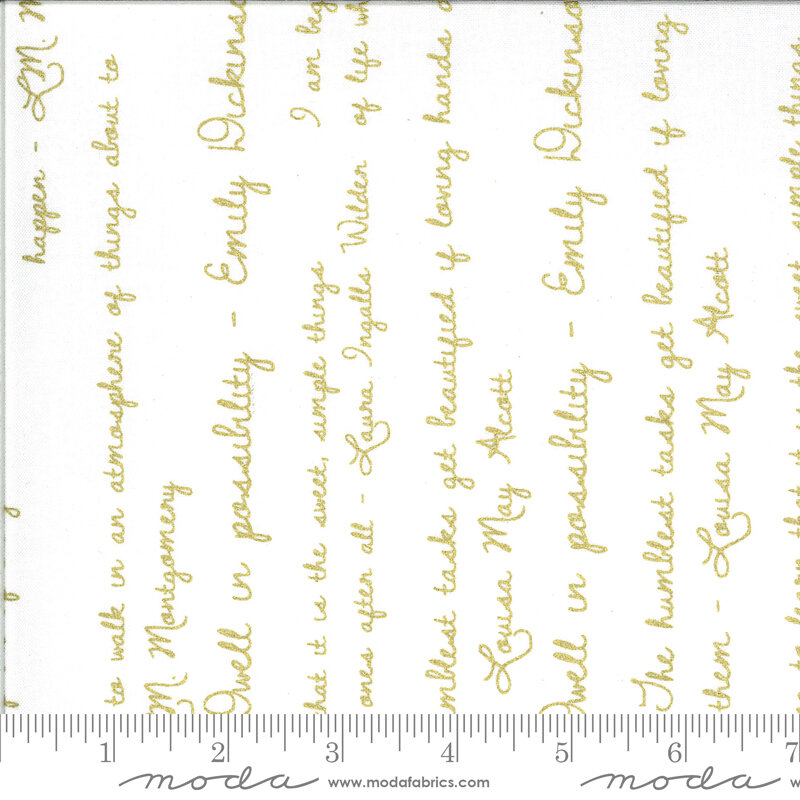 happen - L.M. M
to walk in an atmosphere of things about to
M. Montgomery
Dwell in possibility - Emily Dickinso
I am beg
hat it is the sweet, simple things of life wh
ones after all - Laura Ingalls Wilder
mblest tasks get beautified if loving hands
Louisa May Alcott
Dwell in possibility - Emily Dickinso
The humblest tasks get beautified if loving
them - Louisa May Alcott
to learn that it is the sweet, simple things
1 2 3 4 5 6 7
moda www.modafabrics.com moda w